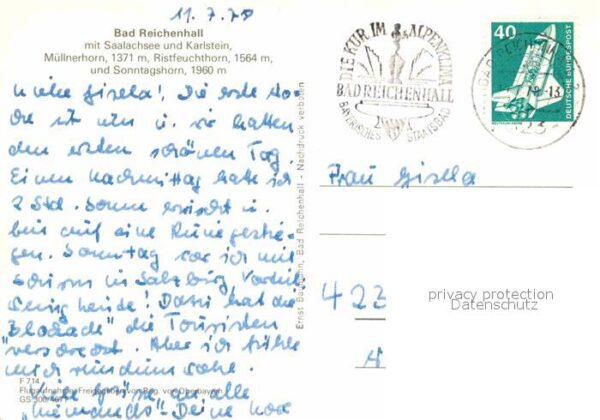 11.7.78
Bad Reichenhall
mit Saalachsee und Karlstein,
Müllnerhorn, 1371 m, Ristfeuchthorn, 1564 m,
und Sonntagshorn, 1960 m
Liebe Gisela! Die erste Wo-
che ist um u. wir hatten
den ersten schönen Tag.
Einen Nachmittag hatte ich
2 Std. Sonne erwischt u.
bin auf eine Ruine gestie-
gen. Sonntag war ich mit
in Salzburg,
wenig heute! Dazu hat die
"Blockade" die Touristen
Aber ich fühle
mich rundum wohl.
Viele Grüße an alle
Deine
F 714
Flugaufnahme: Freigegeben von Reg. von Oberbayern
GS 300/4671
Ernst Baumann, Bad Reichenhall - Nachdruck verboten
DIE KUR IM ALPENKLIMA
BAD REICHENHALL
BAYERISCHES STAATSBAD
40
DEUTSCHE BUNDESPOST
BAD REICHENHALL
Frau Gisela
422
privacy protection
Datenschutz